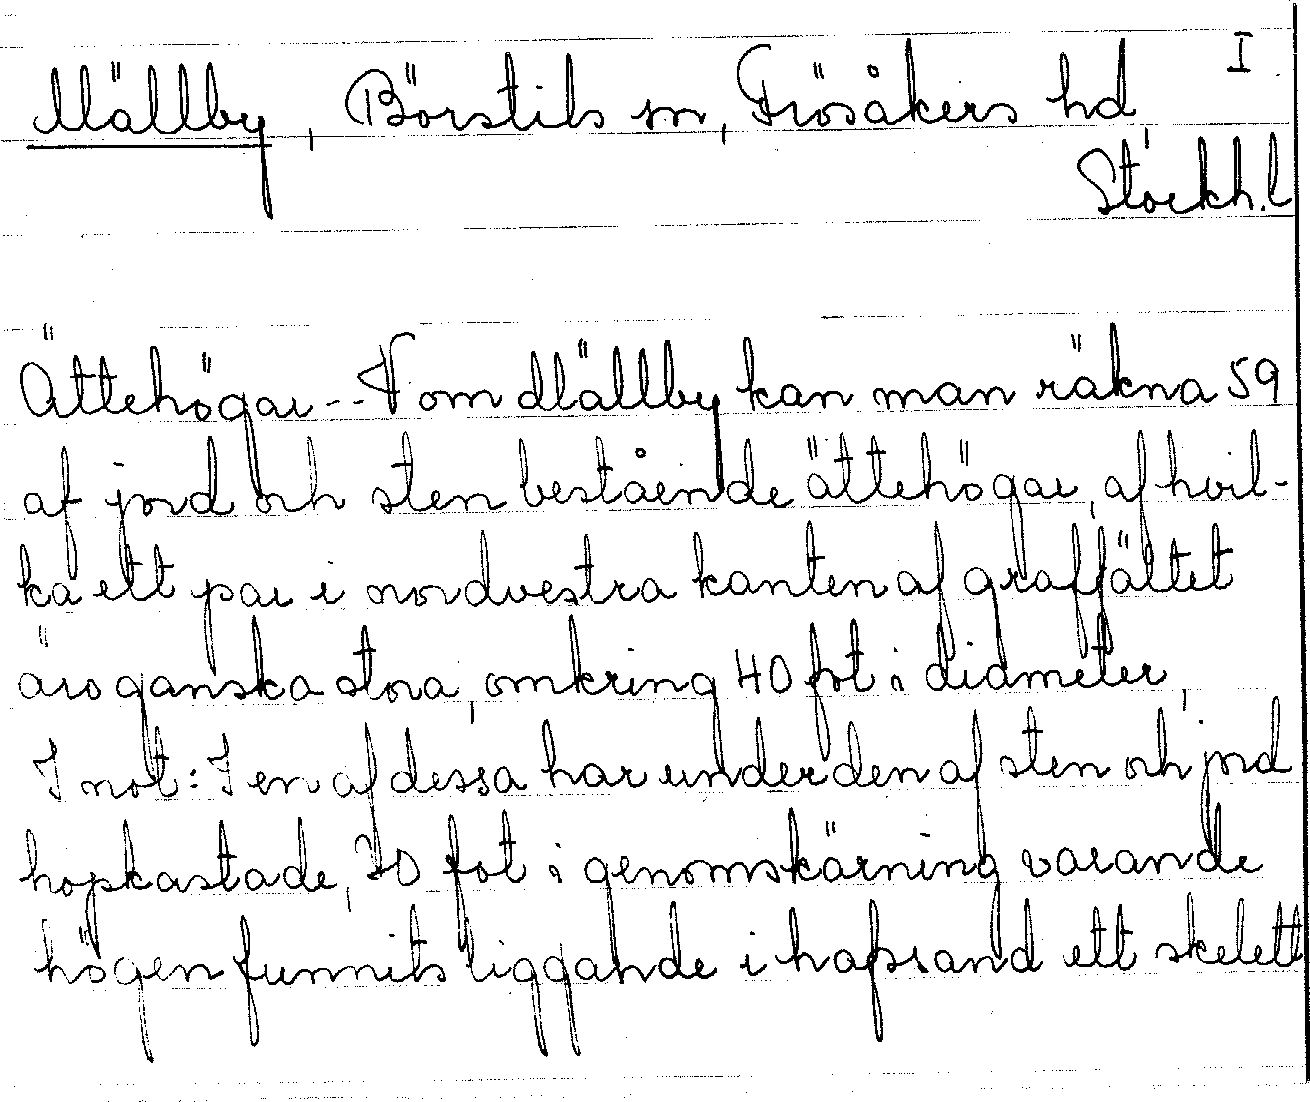 Mällby, Börstils sn, Frösåkers hd I
Stockh. l
Ättehögar -- V om Mällby kan man räkna 59
af jord och sten bestående ättehögar, af hvil-
ka ett par i nordvestra kanten af graffältet
äro ganska stora, omkring 40 fot i diameter,
I not: I en af dessa har under den af sten och jord
hopkastade, 20 fot i genomskärning varande
högen funnits liggande i hafssand ett skelett